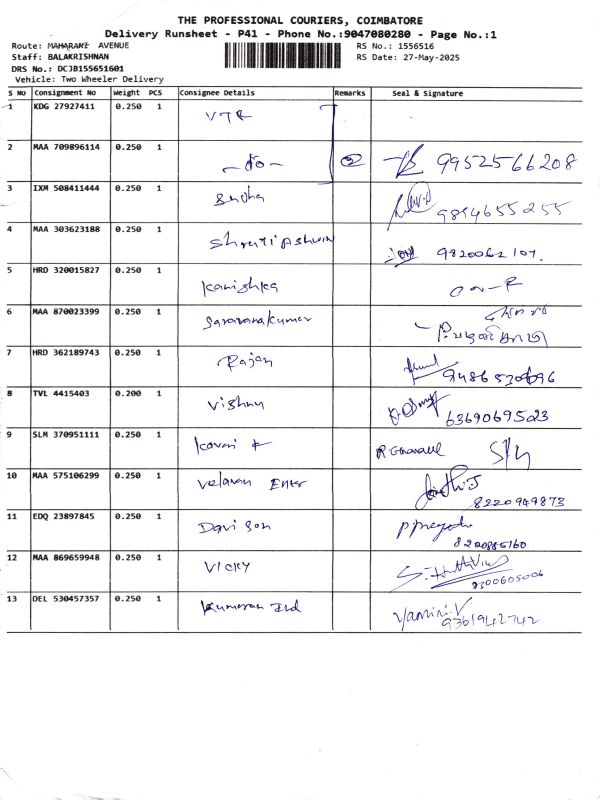 THE PROFESSIONAL COURIERS, COIMBATORE
Delivery Runsheet - P41 - Phone No.:9047080280 - Page No.:1
Route: MAHARANI AVENUE RS No.: 1556516
Staff: BALAKRISHNAN RS Date: 27-May-2025
DRS No.: DCJB155651601
Vehicle: Two Wheeler Delivery
S No Consignment No Weight PCS Consignee Details Remarks Seal & Signature
1 KDG 27927411 0.250 1 VTR
2 MAA 709896114 0.250 1 -do- 2 9952566208
3 IXM 508411444 0.250 1 Sudha 9894655255
4 MAA 303623188 0.250 1 Shruti Ashwin 9820062107.
5 HRD 320015827 0.250 1 Kanishka
6 MAA 870023399 0.250 1 Saravanakumar
7 HRD 362189743 0.250 1 Rajan 9486530696
8 TVL 4415403 0.200 1 Vishnu 6369069523
9 SLM 370951111 0.250 1 Kovai
10 MAA 575106299 0.250 1 Velavan Enter 8220949873
11 EDQ 23897845 0.250 1 Davison 8220885160
12 MAA 869659948 0.250 1 Vicky 9300605006
13 DEL 530457357 0.250 1 Kumaran Ind Yamini.V
9361942742